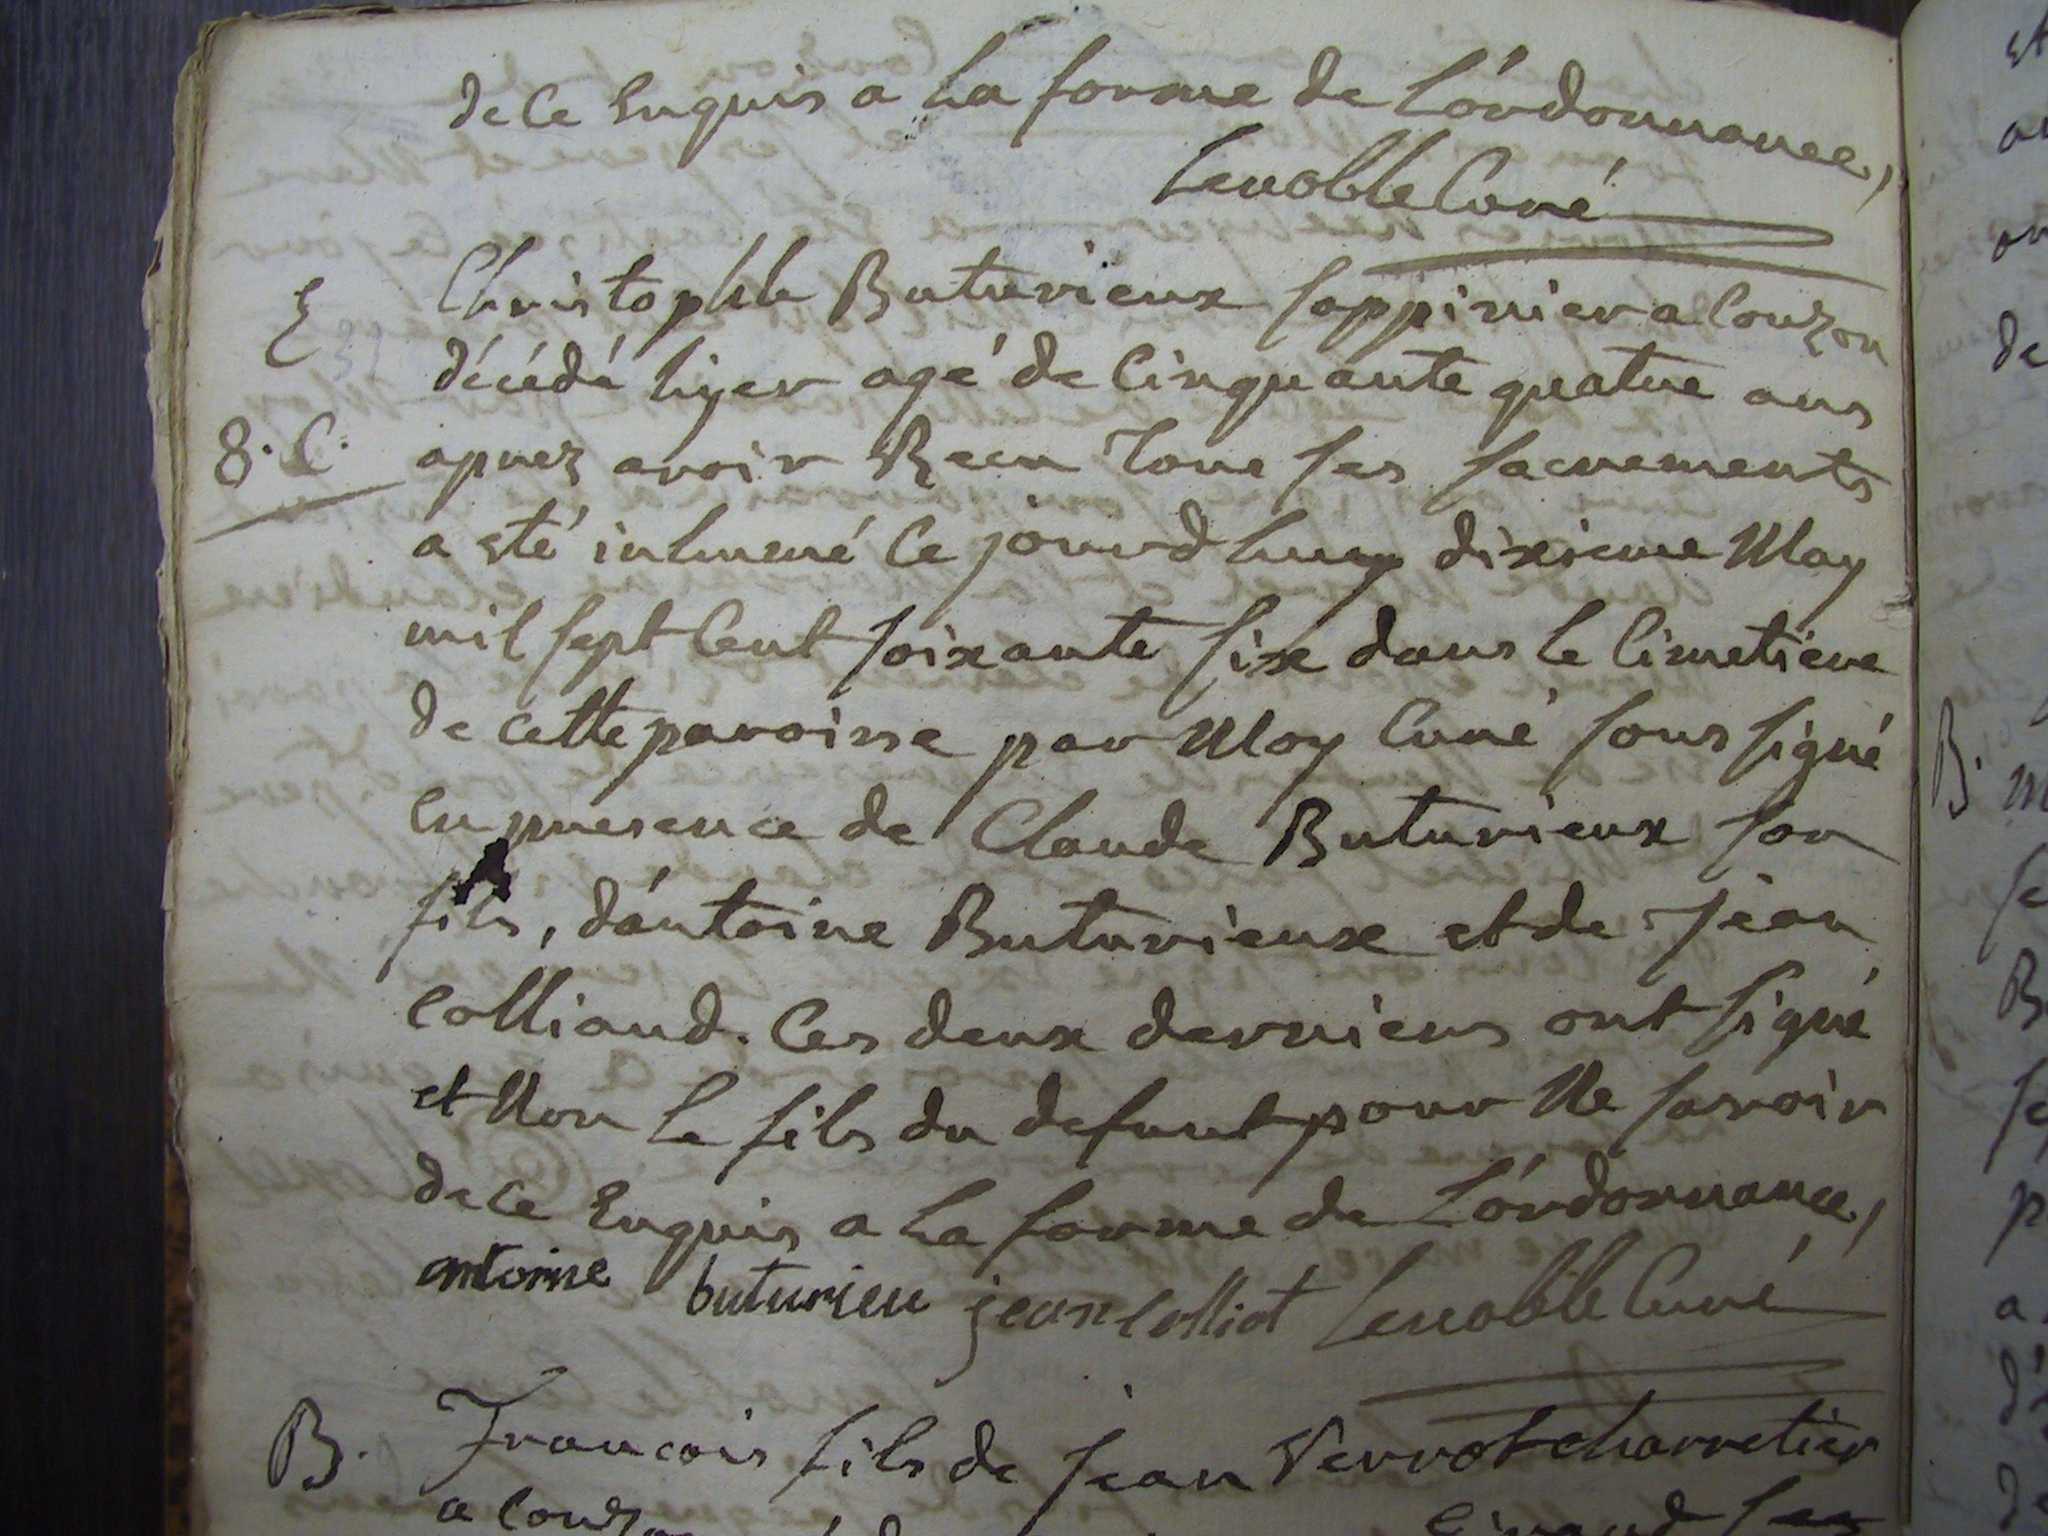 de ce Enquis a La forme de L'ordonnance,
Lenoble Curé
E
Christophle Buturieux sappinier a Couzon
décédé hyer agé de Cinquante quatre ans
8. C.
aprez avoir Recu Tous ses sacrements
a eté inhumé Ce jourdhuy dixieme May
mil sept Cent soixante six dans le Cimetiere
de cette paroisse par Moy Curé sous signé
En presence de Claude Buturieux son
fils, d'antoine Buturieux et de Jean
Colliaud. Ces deux derniers ont signé
et Non le fils du defunt pour Ne savoir
de ce Enquis a La forme de L'ordonnance,
antoine buturieu jean Colliot Lenoble Curé
B. Francois fils de Jean Verrot charretier
a Couzon